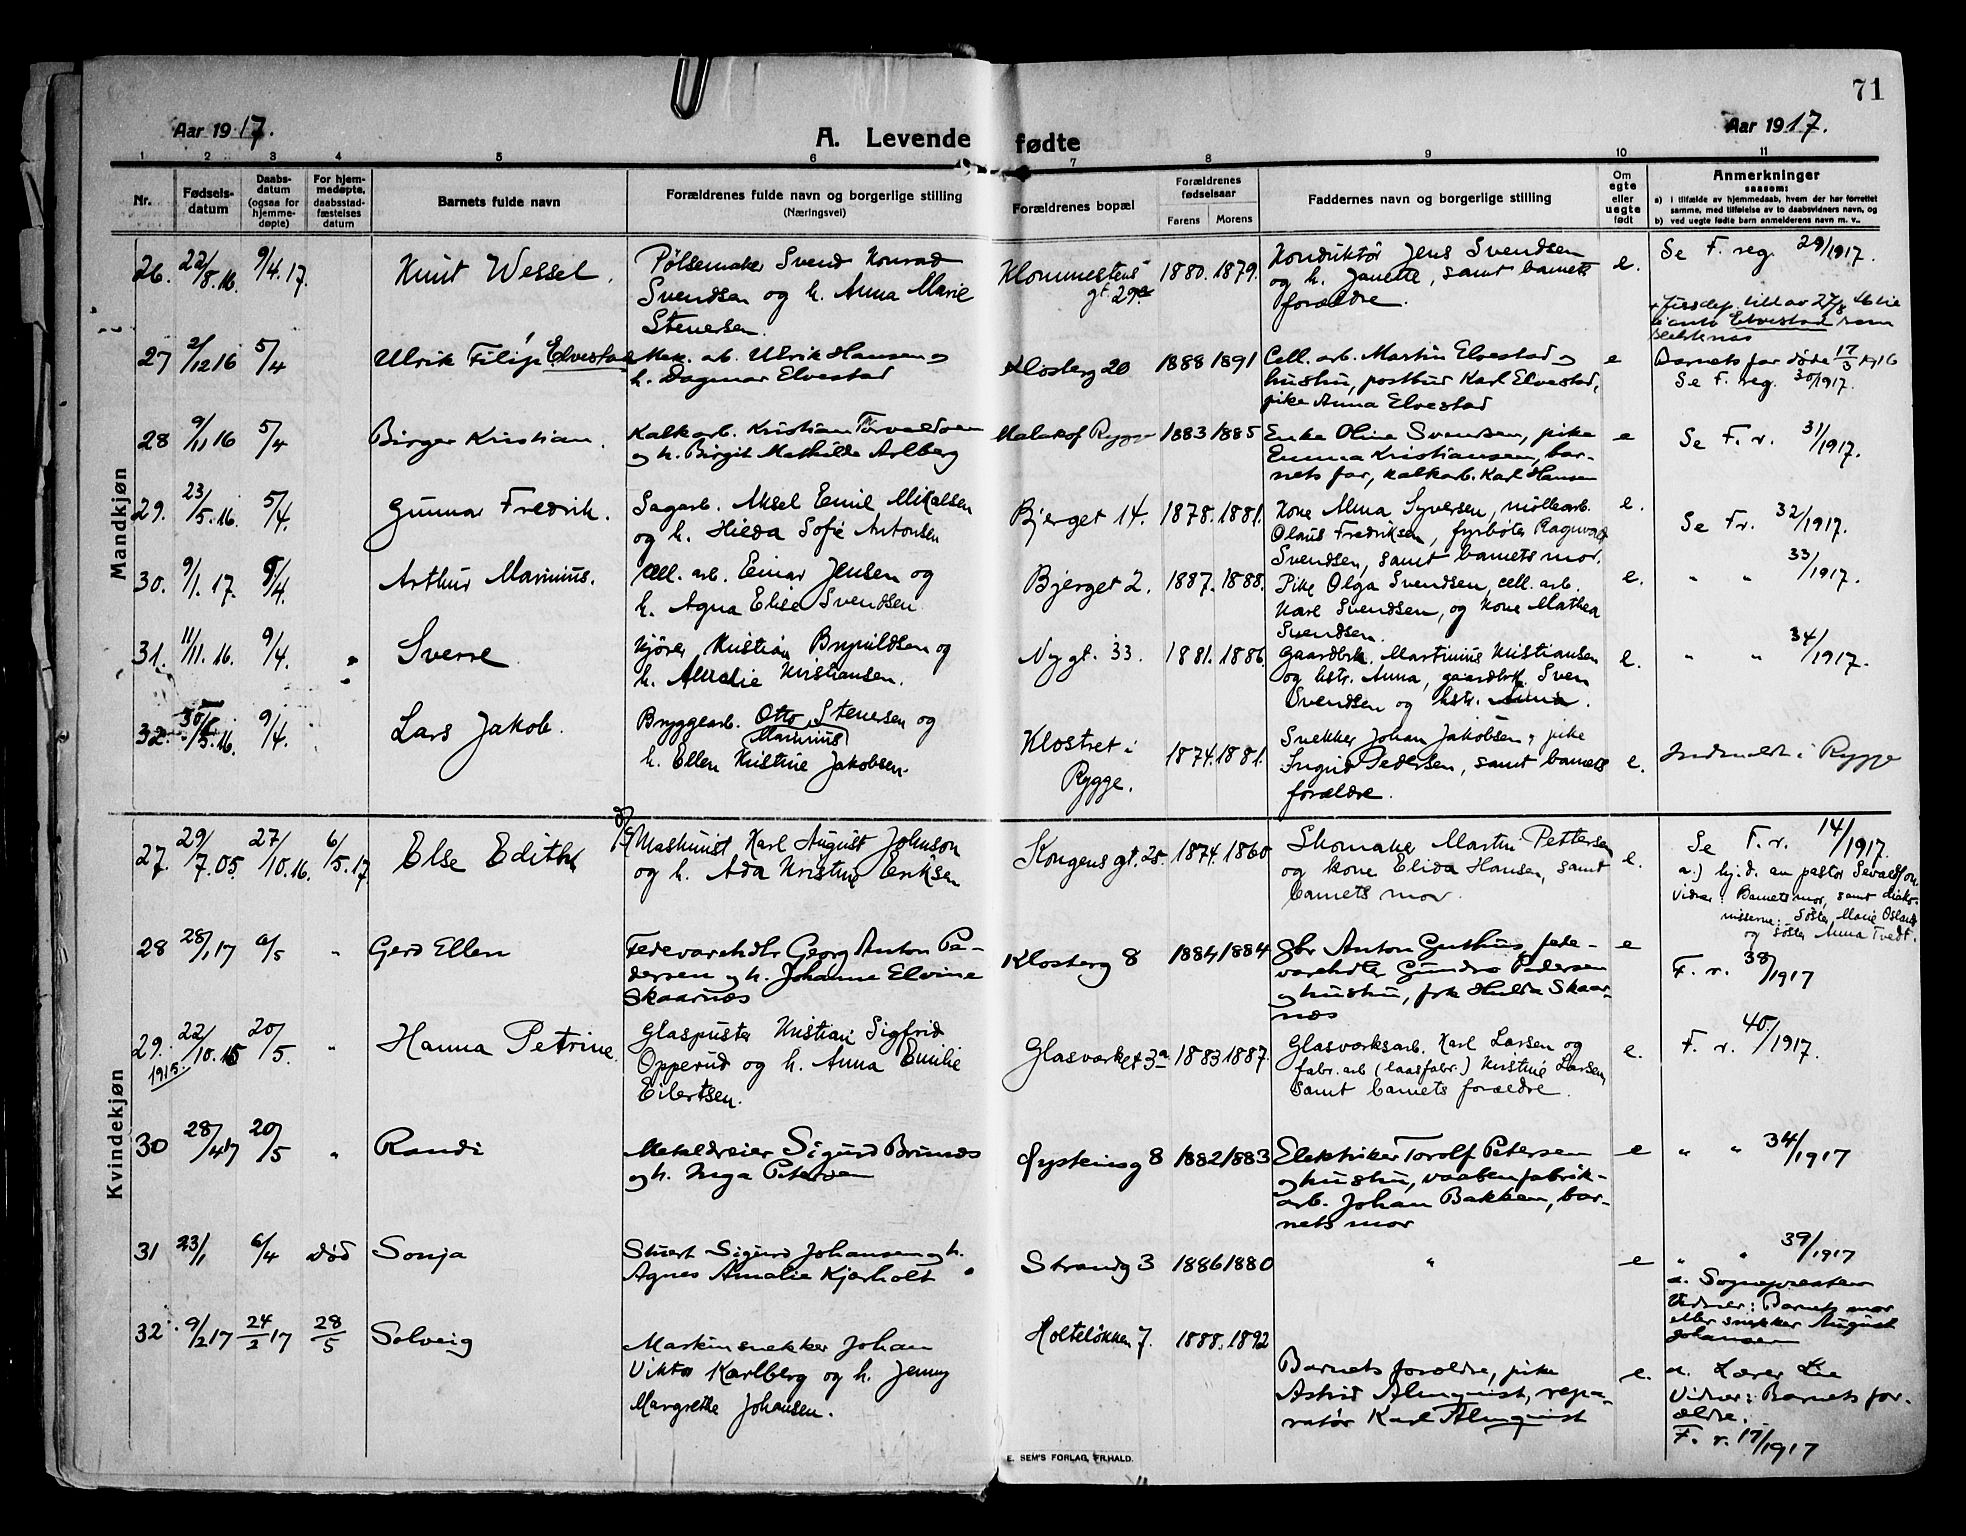 71
Aar 1917.
A. Levende fødte
Aar 1917.
1 2 3 4 5 6 7 8 9 10 11
Nr.
Fødsels-
datum
Daabs-
datum
(ogsaa for
hjemme-
døpte)
For hjem-
medøpte,
daabsstad-
fæstelses
datum
Barnets fulde navn
Forældrenes fulde navn og borgerlige stilling
(Næringsvei)
Forældrenes bopæl
Forældrenes
fødselsaar
Farens Morens
Faddernes navn og borgerlige stilling
Om
egte
eller
uegte
født
Anmerkninger
saasom:
a) i tilfælde av hjemmedaab, hvem der har forrettet
samme, med tilføielse av to daabsvidners navn, og
b) ved uegte fødte barn anmelderens navn m. v..
Mandkjøn
26. 22/8.16. 9/4.17. Knut Wessel.
Pølsemaker Svend Konrad
Svendsen og h. Anna Marie
Stenersen.
gt. 29a 1880. 1879.
Konduktør Jens Svendsen
og h. Janette, samt barnets
forældre.
e.
Se F. reg. 29/1917.
27 2/12 16 5/4 Ulrik Filip Elvestad
Mek. arb. Ulrik Hansen og
h. Dagmar Elvestad
Klosterg 20 1888 1891
Cell. arb. Martin Elvestad og
hustru, postbud Karl Elvestad,
pike Anna Elvestad
e
Elvestad som
Barnets far døde 17/3 1916
Se F. reg. 30/1917.
28 9/11 16 5/4 Birger Kristian.
Kalkarb. Kristian Torvaldsen
og h. Birgit Mathilde Arlberg
Malakof Rygge 1883 1885
Enke Oline Svensen, pike
Emma Kristiansen, bar-
nets far, kalkarb. Karl Hansen
e
Se F. r. 31/1917.
29. 23/5.16. 5/4. Gunnar Fredrik.
Sagarb. Aksel Emil Mikalsen
og h. Hilda Sofie Antonsen
Bjerget 14. 1878. 1881.
Kone Alma Syversen, møllearb.
Olaus Fredriksen, fyrbøter Ragnvald
Svendsen, samt barnets mor.
e.
Se Fr. 32/1917.
30. 9/1.17. 9/4. Arthur Marinius.
Cell. arb. Einar Jensen og
h. Agna Elise Svendsen.
Bjerget 2. 1887. 1888.
Pike Olga Svendsen, cell. arb.
Karl Svendsen, og kone Mathea
Svendsen.
e.
" " 33/1917.
31. 11/11.16. 9/4. Sverre.
Kjører Kristian Brynildsen og
h. Amalie Kristiansen.
Nygt. 33. 1881. 1886.
Gaardbrk. Martinius Kristiansen
og hstr. Anna, gaardbrk. Sven
Svendsen og hstr. Anna.
e.
" " 34/1917.
32. 30/5.16. 9/4. Lars Jakob.
Bryggearb. Otto Stenersen og
Marinius
h. Ellen Kristine Jakobsen.
Klostret i
Rygge.
1874. 1881.
Snekker Johan Jakobsen, pike
Ingrid Pedersen, samt barnets
forældre.
e.
Indmeldt i Rygge
Kvindekjøn
27. 29/7.05. 27/10.16. 6/5.17. Else Edith
Maskinist Karl August Johnson
og h. Ada Kristine Eriksen
Kongens gt. 25 1874. 1860
Skomaker Martin Pettersen
og kone Elida Hansen, samt
barnets mor.
e.
Se F. r. 14/1917.
a.) hj.d. av pastor Sevaldson
Vidner: Barnets mor, samt diako-
nisserne: Søster Marie Osland
og søster Anna Tvedt.
28 28/1 17 6/5 " Gerd Ellen
Fedevarehdlr Georg Anton Pe-
dersen og h. Johanne Elvine
Skaarnæs
Klosterg 8 1884 1884
Gbr Anton Guthus, fede-
varehdler Gundro Pedersen
og hustru, frk Hulda Skaar-
næs
e
F. r. 38/1917
29. 22/10.15 20/5. " Hanna Petrine.
1915.
Glaspuster Kristian Sigfrid
Opperud og h. Anna Emilie
Eilertsen.
Glasværket 3a 1883 1887.
Glasværksarb. Karl Larsen og
fabr. arb (laasfabr.) Kristine Larsen,
samt barnets forældre.
e.
F. r. 40/1917.
30 28/4 17 20/5 " Randi
Metaldreier Sigurd Brunæs
og h. Inga Petersen
Øysteinsg 8 1882 1883
Elektriker Torolf Petersen
og hustru, vaabenfabrik-
arb. Johan Bakken, bar-
nets mor
e
" " 34/1917
31 23/1 6/4 død Sonja
Stuert Sigurd Johansen og h.
Agnes Amalie Kjærholt
Strandg 3 1886 1880
"
e
" " 39/1917
a. Sognepresten
Vidner: Barnets mor
eller snekker August
Johansen
32. 9/2 17 24/2 17 28/5 Solveig
Maskinsnekker Johan
Viktor Karlberg og h. Jenny
Margrethe Johansen.
Holteløkken 7. 1888. 1892
Barnets forældre, pike
Astrid Almquist, repa-
ratør Karl Almquist
e.
a. Lærer Lie
Vidner: Barnets for-
ældre.
F. r. 17/1917
E. SEM'S FORLAG, FR.HALD.